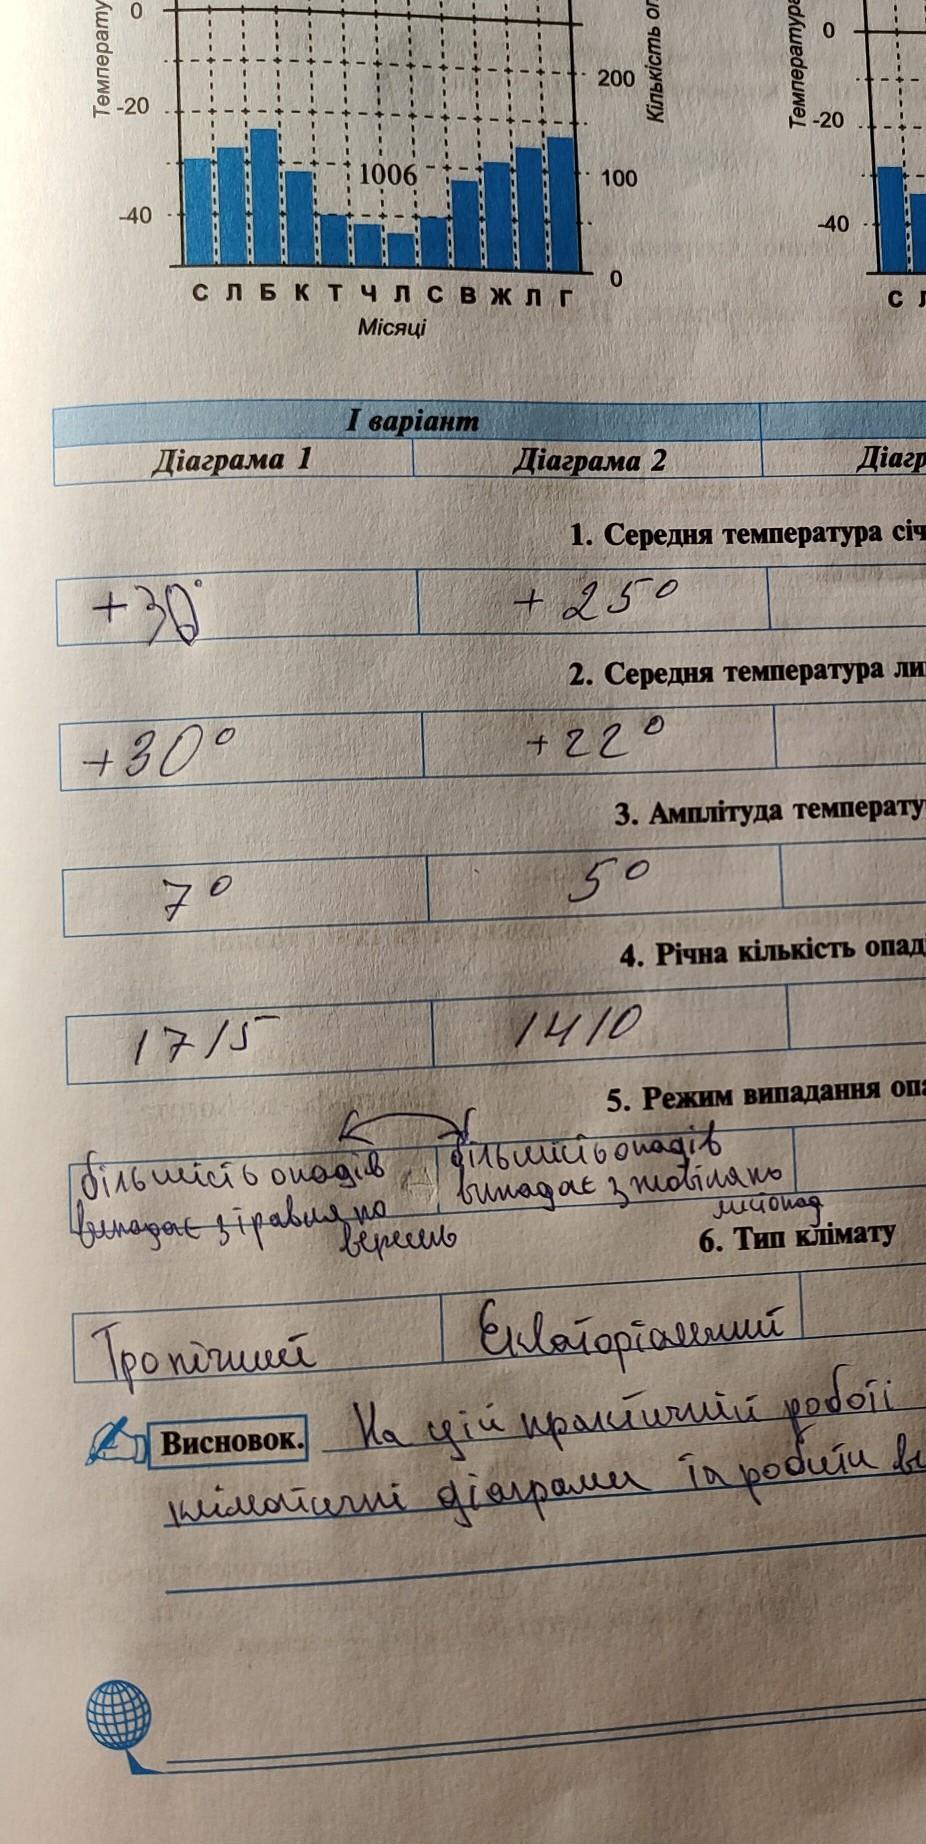 Температу
0
-20
-40
1006
200
100
0
Кількість оп
С Л Б К Т Ч Л С В Ж Л Г
Місяці
Температура
0
-20
-40
С Л
І варіант
Діаграма 1
Діаграма 2
Діагр
1. Середня температура січ
+30°
+25°
2. Середня температура ли
+30°
+22°
3. Амплітуда температу
7°
5°
4. Річна кількість опаді
1715
1410
5. Режим випадання опа
більшість опадів
випадає з травня по
вересень
більшість опадів
випадає з жовтня по
листопад
6. Тип клімату
Тропічний
Екваторіальний
Висновок. На цій практичній роботі
кліматичні діаграми та робити в